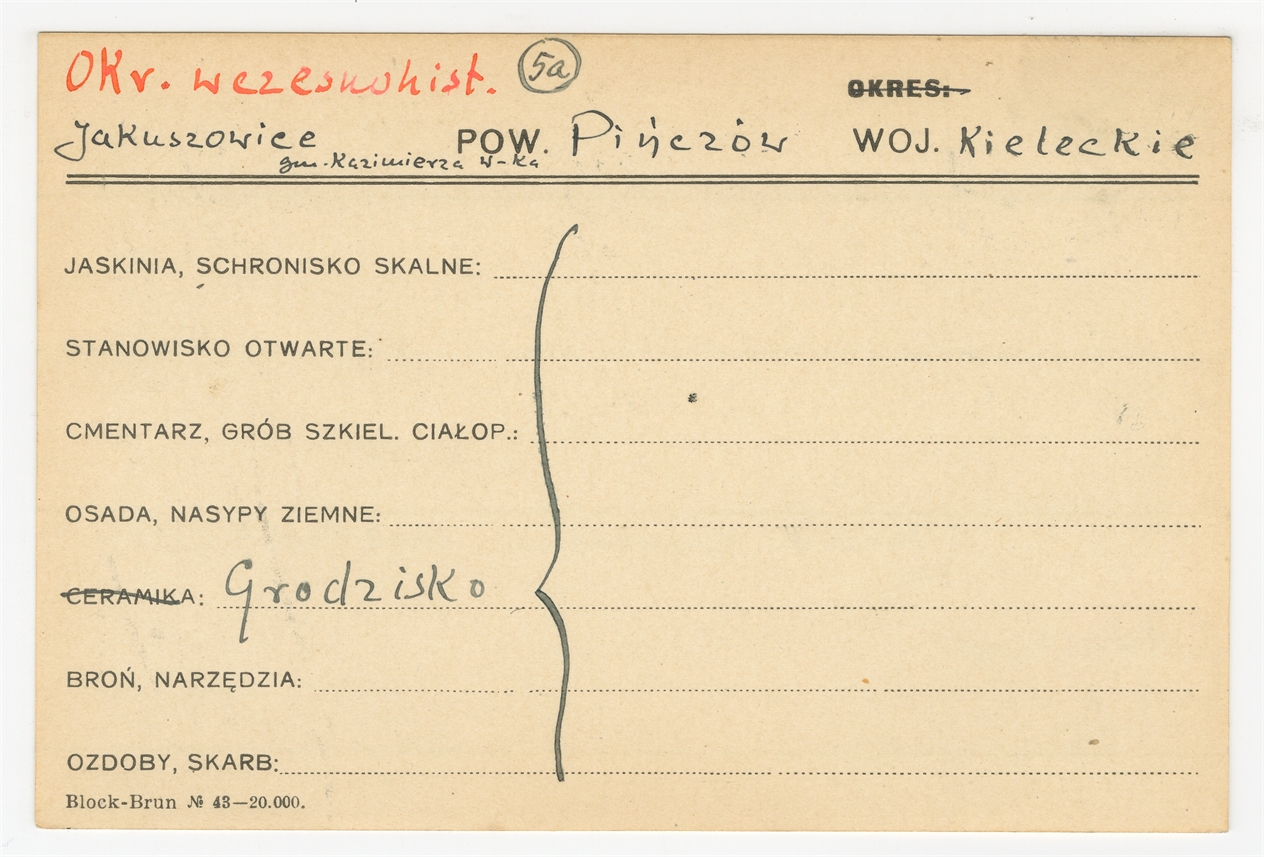 Okr. wczesnohist. 5a OKRES:
Jakuszowice POW. Pińczów WOJ. Kieleckie
gm. Kazimierza W-ka
JASKINIA, SCHRONISKO SKALNE:
STANOWISKO OTWARTE:
CMENTARZ, GRÓB SZKIEL. CIAŁOP.:
OSADA, NASYPY ZIEMNE:
CERAMIKA: Grodzisko
BROŃ, NARZĘDZIA:
OZDOBY, SKARB:
Block-Brun № 43—20.000.